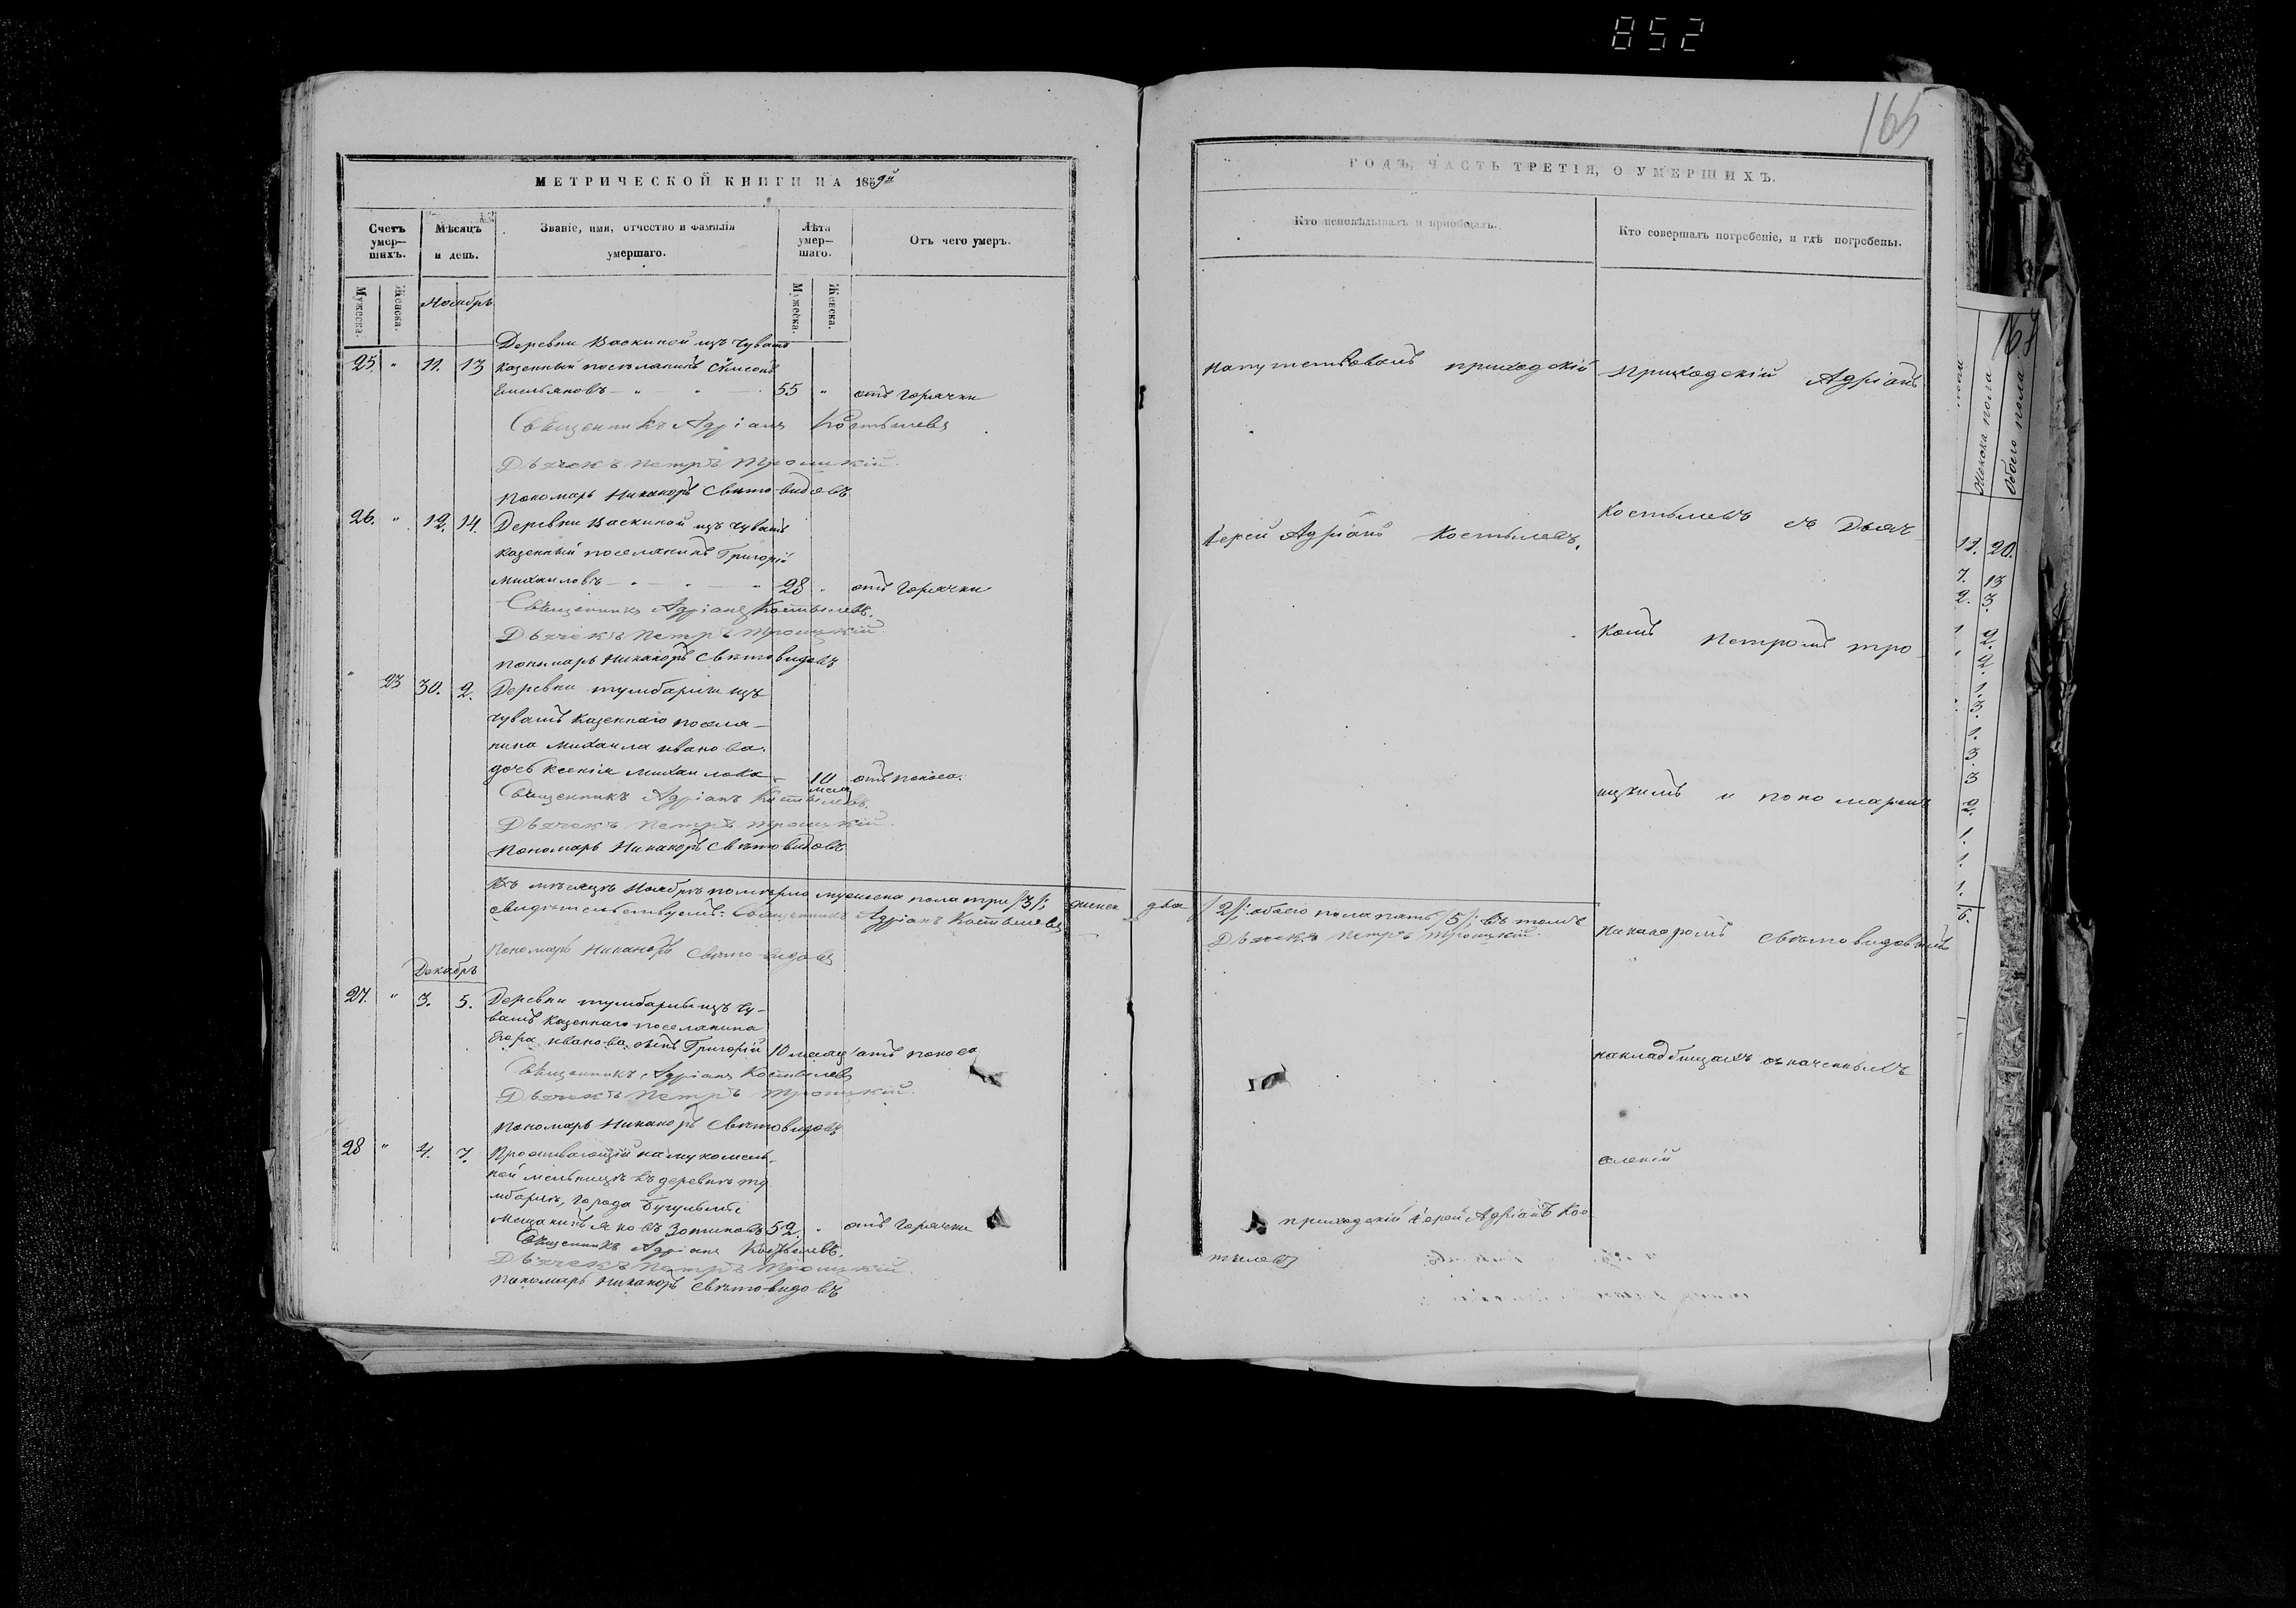 852
165
МЕТРИЧЕСКОЙ КНИГИ НА 1859й
Счетъ умер—шихъ.
Мѣсяцъ и день.
Званіе, имя, отчество и фамилія умершаго.
Лѣта умер—шаго.
Отъ чего умеръ.
Мужеска.
Женска.
Мужеска.
Женска.
Ноябрь
Деревни Васкиной изъ Чувашъ
25. " 11. 13 казенный поселянинъ Симеонъ
Емельяновъ — " — " — 55 " отъ горячки
Священникъ Адріанъ Костылевъ
Дьячекъ Петръ Троицкій.
Пономарь Никаноръ Свѣтовидовъ
26. " 12. 14. Деревни Васкиной изъ Чувашъ
казенный поселянинъ Григорій
Михаиловъ — " — " — " 28 " отъ горячки
Священникъ Адріанъ Костылевъ.
Дьячекъ Петръ Троицкій.
Пономарь Никаноръ Свѣтовидовъ
" 23 30. 2. Деревни Тумбарли изъ
Чувашъ казеннаго поселя—
нина Михаила Иванова.
дочь Ксенія Михаилова — 10 месяц отъ поноса.
Священникъ Адріанъ Костылевъ.
Дьячекъ Петръ Троицкій.
Пономарь Никаноръ Свѣтовидовъ
Въ мѣсяцѣ Ноябрѣ померло мужеска пола три /3/; женск два /2/: обоего пола пять /5/; въ томъ
свидѣтельствуемъ: Священникъ Адріанъ Костылевъ Дьячекъ Петръ Троицкій.
Пономарь Никаноръ Свѣтовидовъ
Декабрь
27. " 3. 5. Деревни Тумбарли изъ Чу—
вашъ казеннаго поселянина
Егора Иванова сынъ Григорій 10 месяц отъ поноса
Священникъ Адріанъ Костылевъ
Дьячекъ Петръ Троицкій.
Пономарь Никаноръ Свѣтовидовъ
28 " 4. 7. Проживающій на мукомоль—
ной мельницѣ въ деревнѣ Ту
мбарлѣ, города Бугульмы
мещанинъ Яковъ Зотиковъ 52. " отъ горячки
Священникъ Адріанъ Костылевъ.
Дьячекъ Петръ Троицкій.
Пономарь Никаноръ Свѣтовидовъ
ГОДЪ, ЧАСТЬ ТРЕТІЯ, О УМЕРШИХЪ.
Кто исповѣдывалъ и пріобщалъ.
Кто совершалъ погребеніе, и гдѣ погребены.
Напутствовалъ приходскій
Іерей Адріанъ Костылевъ.
приходскій Іерей Адріанъ Кос
тылевъ
Приходскій Адріанъ
Костылевъ съ Дьяч
комъ Петромъ Тро
ицкимъ и пономаремъ
Никаноромъ Свѣтовидовымъ
на кладбищахъ означенныхъ
селеній
167
Женска пола
Обоего пола
11. 20.
7. 13
2. 3.
2.
2.
1.
3.
1.
3.
3
2.
1.
1.
1.
6.